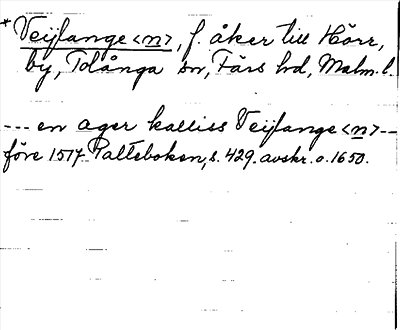 * Veijlange <n>, f. åker till Hörr,
by, Tolånga sn, Färs hd, Malm. l.
--- en ager kalliss Veijlange <n> --
före 1517 Palteboken, s. 429. avskr. o. 1650.